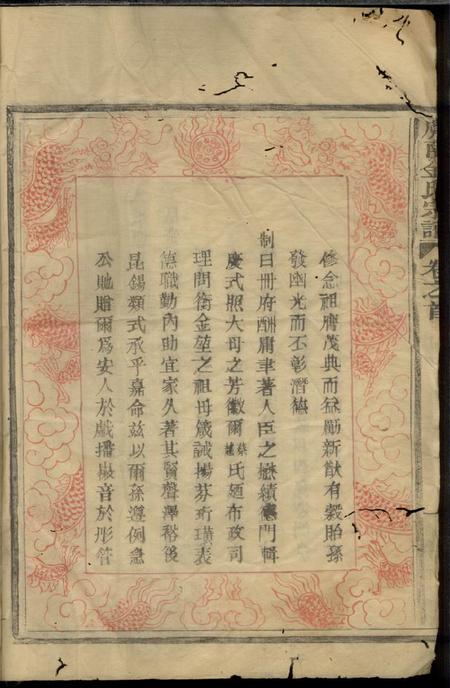 金氏宗譜 卷之首
修念祖膺茂典而益勵新猷有穀貽孫
發幽光而丕彰潛德
制曰冊府酬庸聿著人臣之懋績德門輯
慶式昭大母之芳徽爾蔡氏廼布政司
理問銜金堃之祖母箴誡揚芬珩璜表
德職勤內助宜家久著其賢聲澤裕後
昆錫類式承乎嘉命茲以爾孫遵例急
公貤贈爾為安人於戲播徽音於彤管